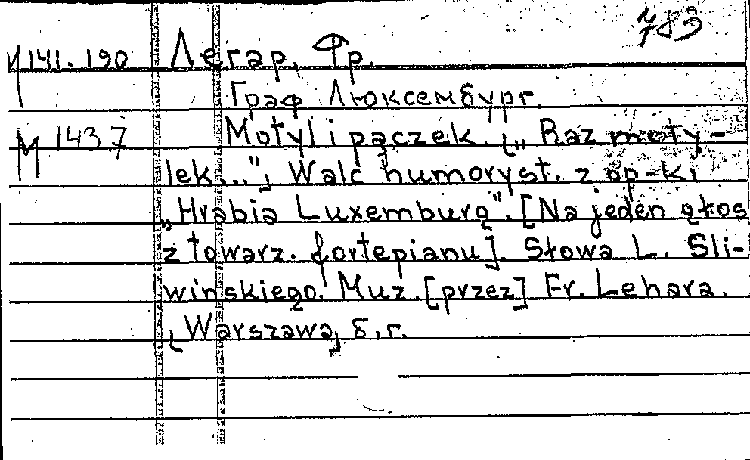 783
М 141.190 Легар, Фр.
Граф Люксембург.
М 1437 Motyl i pączek. [„Raz moty-
lek..."] Walc humoryst. z op-ki
„Hrabia Luxemburg". [Na jeden głos
z towarz. fortepianu]. Słowa L. Śli-
wińskiego. Muz. [przez] Fr. Lehara.
[Warszawa] б.г.